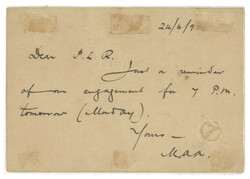 24/6/9
Dear P. & R.
Just a reminder
of our engagement for 7 P.M.
tomorrow (Monday).
Yours –
Maa.